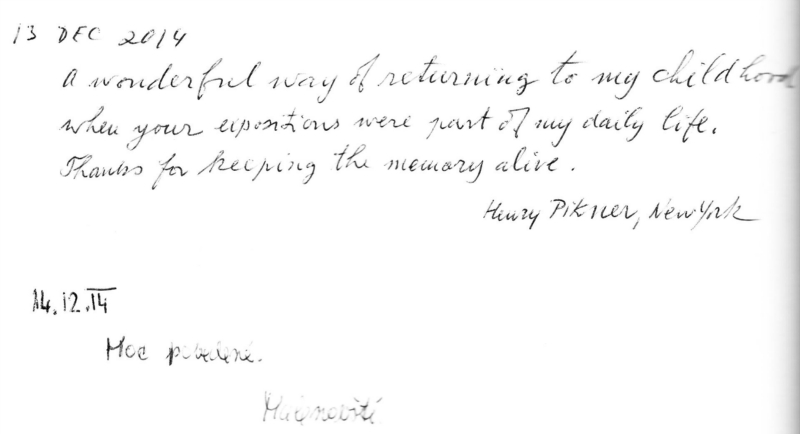 13 DEC 2014
A wonderful way of returning to my childhood
when your expositions were part of my daily life.
Thanks for keeping the memory alive.
Henry Pikner, New York
14.12.14
Moc povedené.